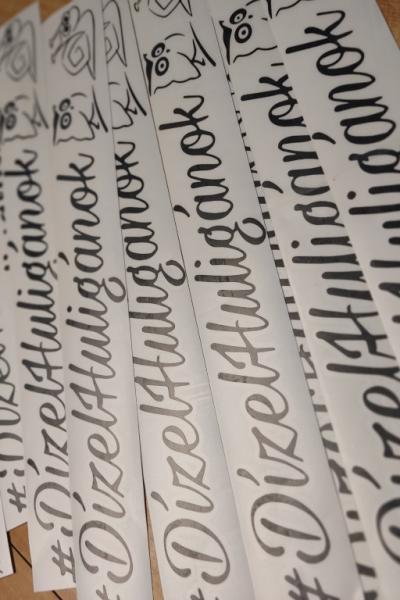 #DízelHuligánok
#DízelHuligánok
#DízelHuligánok
#DízelHuligánok
#DízelHuligánok
DízelHuligánok